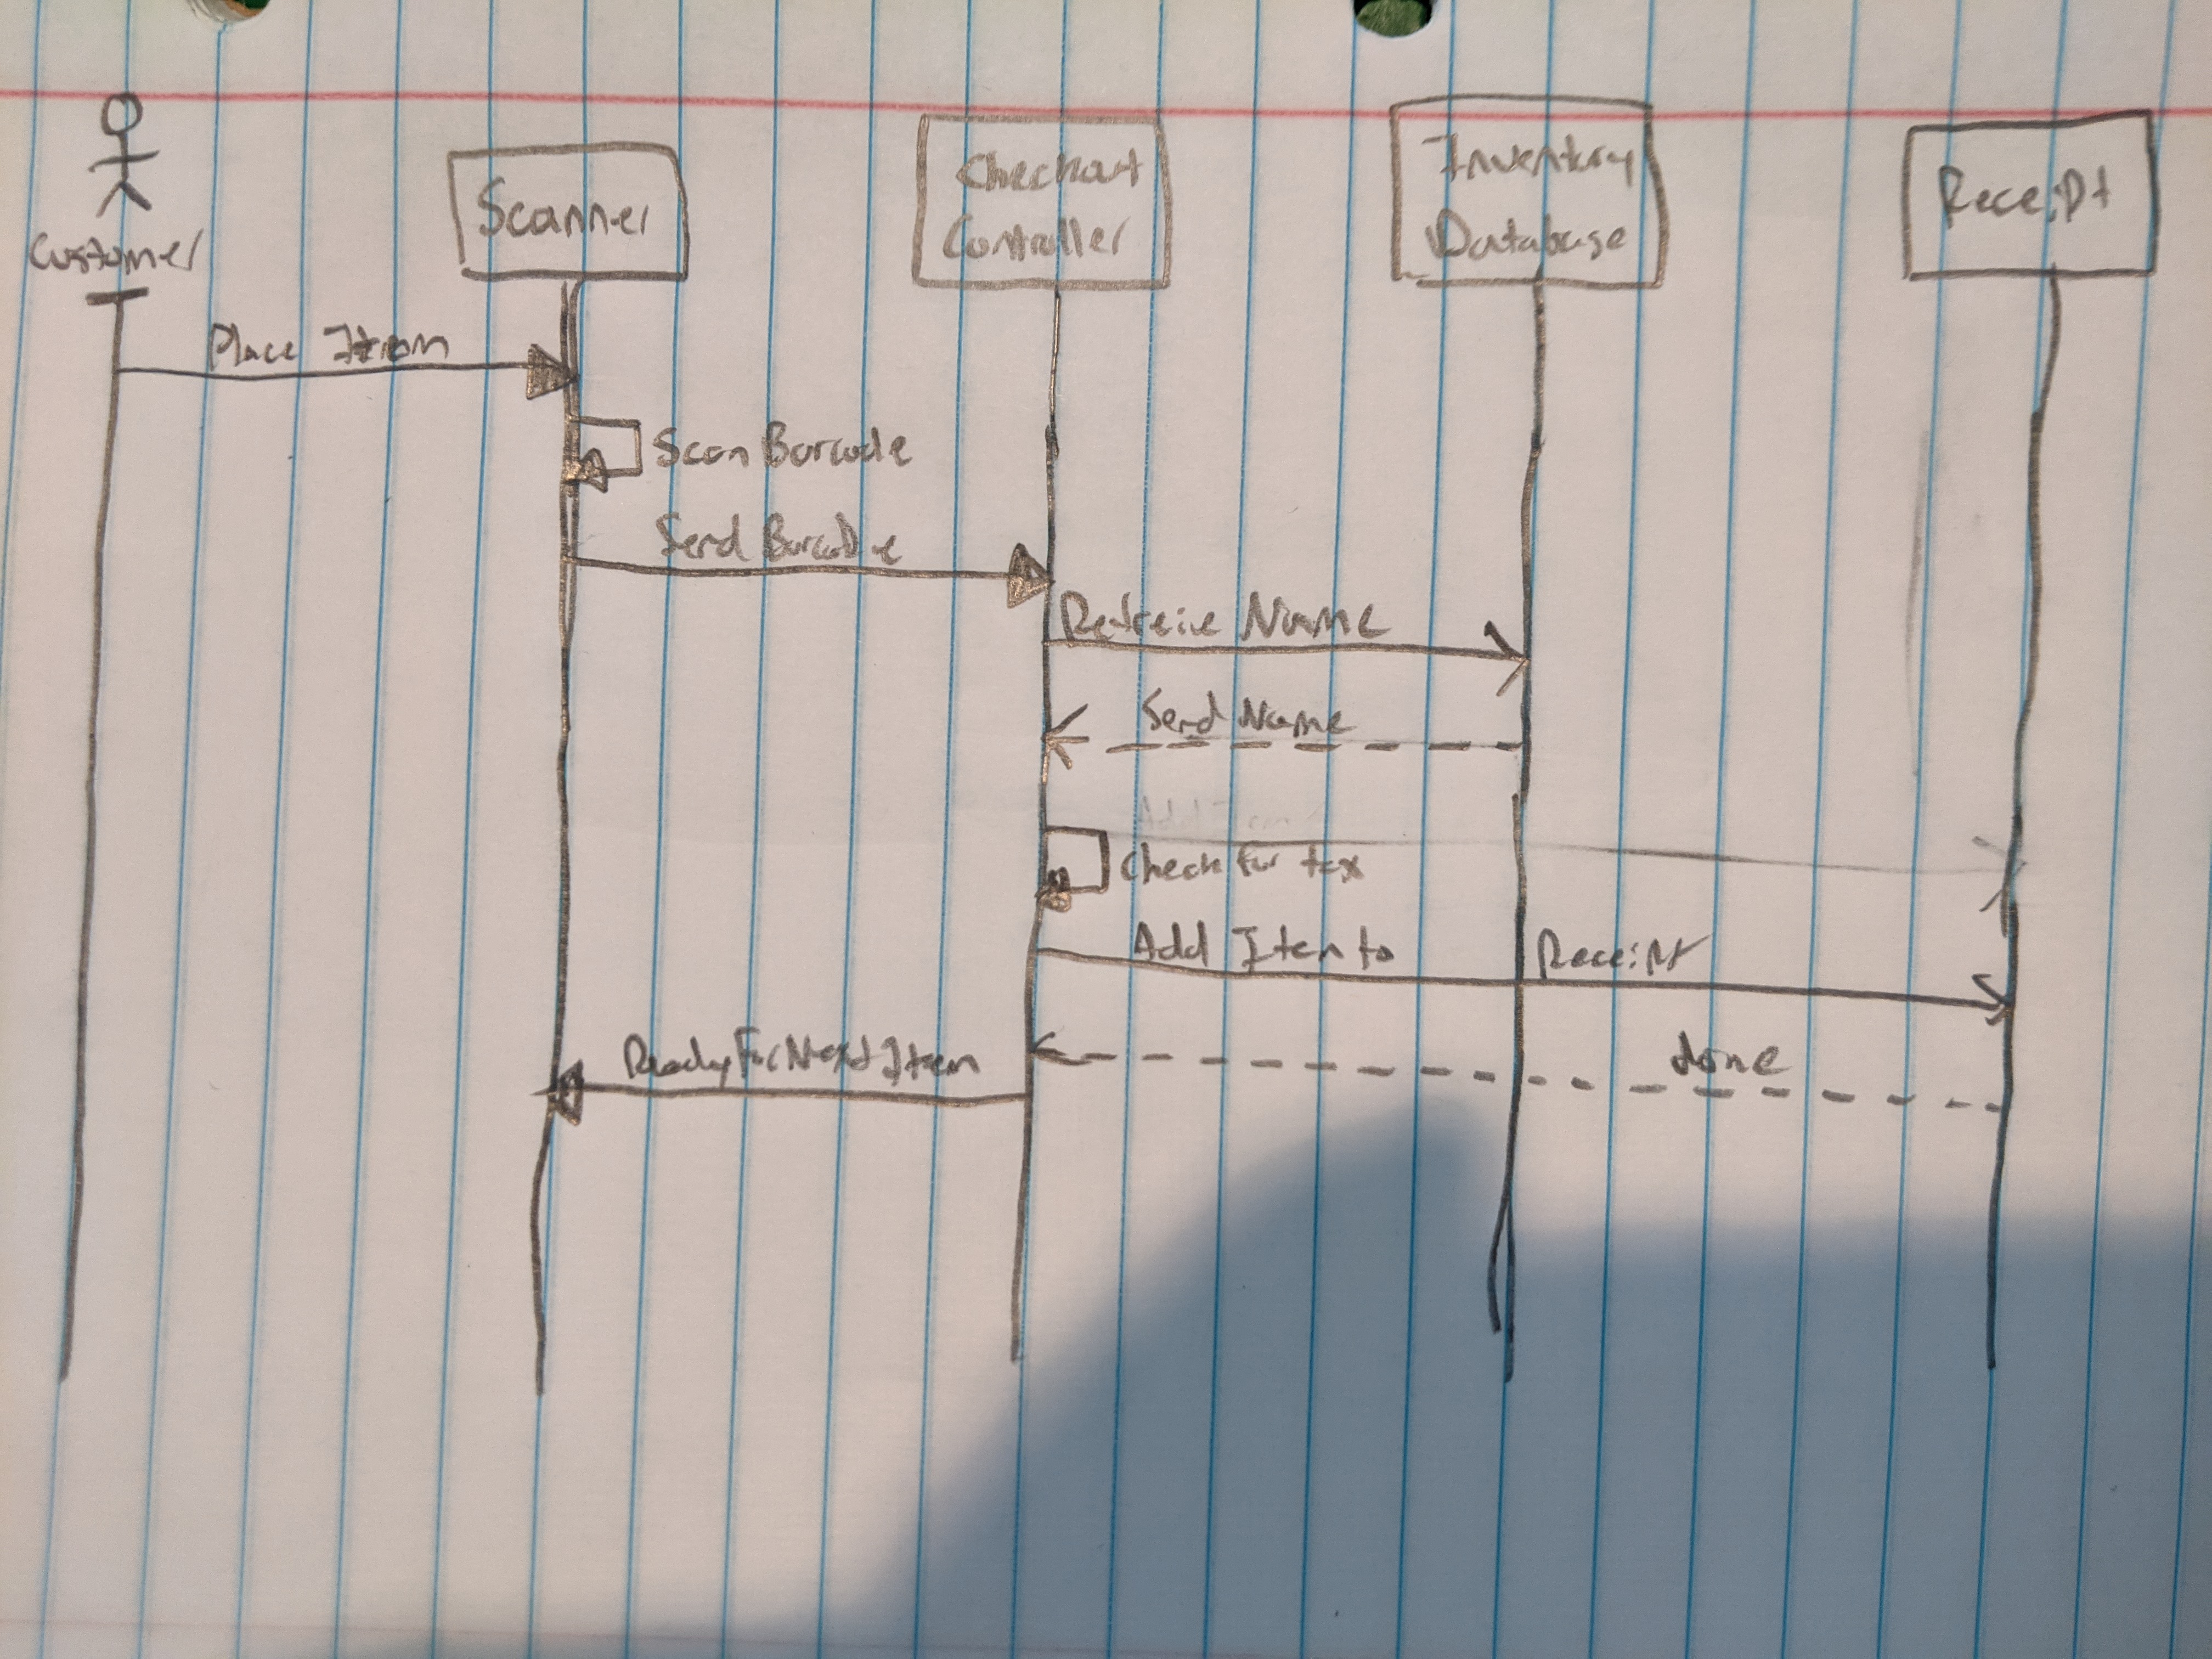 Customer
Scanner
Checkout
Controller
Inventory
Database
Receipt
Place Item
Scan Barcode
Send Barcode
Retreive Name
Send Name
Check for tax
Add Item to Receipt
done
ReadyForNextItem